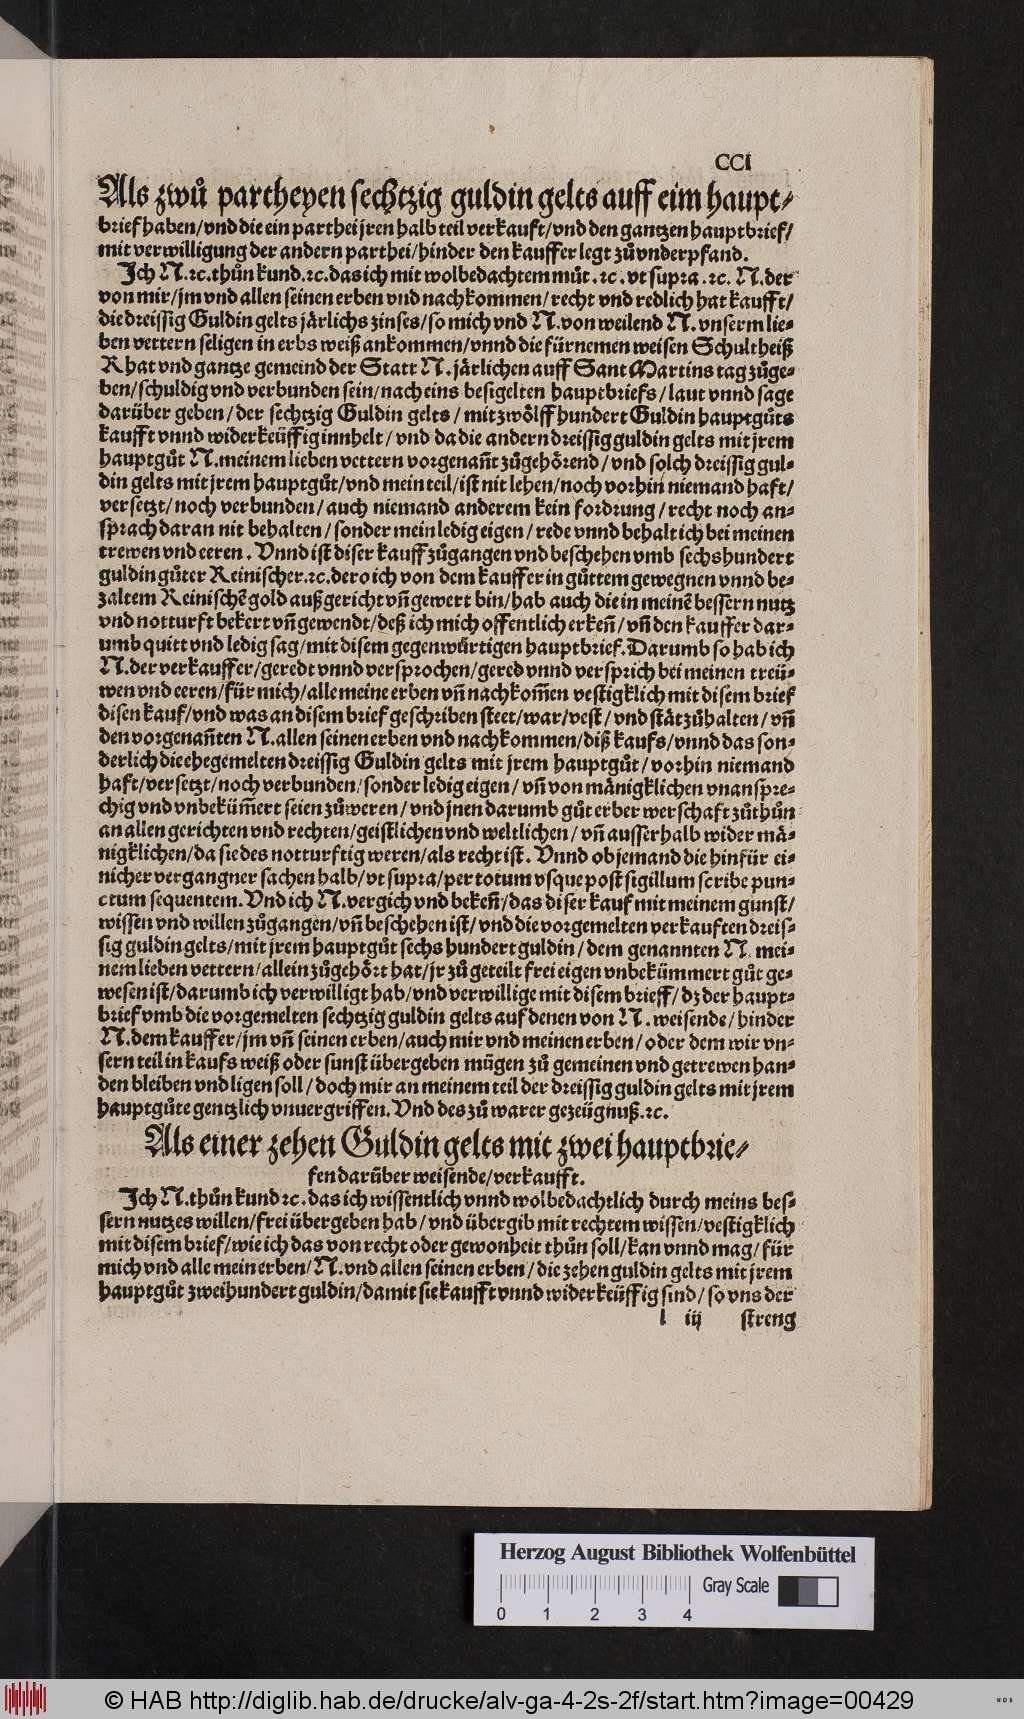 CCI
Als zwů partheyen sechtzig guldin gelts auff eim haupt⸗
brief haben/vnd die ein parthei jren halb teil verkauft/vnd den gantzen hauptbrief/
mit verwilligung der andern parthei/hinder den kauffer legt zůvnderpfand.
Ich N.ꝛc.thůn kund.ꝛc.das ich mit wolbedachtem můt.ꝛc.vt supra.ꝛc. N.der
von mir/jm vnd allen seinen erben vnd nachkommen/recht vnd redlich hat kaufft/
die dreissig Guldin gelts järlichs zinses/so mich vnd N.von weilend N.vnserm lie⸗
ben vettern seligen in erbs weiß ankommen/vnnd die fürnemen weisen Schultheiß
Rhat vnd gantze gemeind der Statt N.järlichen auff Sant Martins tag zůge⸗
ben/schuldig vnd verbunden sein/nach eins besigelten hauptbriefs/laut vnnd sage
darüber geben/der sechtzig Guldin gelts/mit zwölff hundert Guldin hauptgůts
kaufft vnnd widerkeüffig innhelt/vnd da die andern dreissig guldin gelts mit jrem
hauptgůt N.meinem lieben vettern vorgenañt zůgehörend/vnd solch dreissig gul⸗
din gelts mit jrem hauptgůt/vnd mein teil/ist nit lehen/noch vorhin niemand haft/
versetzt/noch verbunden/auch niemand anderem kein fordrung/recht noch an⸗
sprach daran nit behalten/sonder mein ledig eigen/rede vnnd behalt ich bei meinen
trewen vnd eeren. Vnnd ist diser kauff zůgangen vnd beschehen vmb sechshundert
guldin gůter Reinischer.ꝛc.dero ich von dem kauffer in gůttem gewegnen vnnd be⸗
zaltem Reinischẽ gold außgericht vñ gewert bin/hab auch die in meinẽ bessern nutz
vnd notturft bekert vñ gewendt/deß ich mich offentlich erkeñ/vñ den kauffer dar⸗
umb quitt vnd ledig sag/mit disem gegenwürtigen hauptbrief.Darumb so hab ich
N.der verkauffer/geredt vnnd versprochen/gered vnnd versprich bei meinen treü⸗
wen vnd eeren/für mich/alle meine erben vñ nachkom̃en vestigklich mit disem brief
disen kauf/vnd was an disem brief geschriben steet/war/vest/vnd stät zůhalten/vñ
den vorgenañten N.allen seinen erben vnd nachkommen/diß kaufs/vnnd das son⸗
derlich die ehegemelten dreissig Guldin gelts mit jrem hauptgůt/vorhin niemand
haft/versetzt/noch verbunden/sonder ledig eigen/vñ von mänigklichen vnanspre⸗
chig vnd vnbeküm̃ert seien zůweren/vnd jnen darumb gůt erber werschaft zůthůn
an allen gerichten vnd rechten/geistlichen vnd weltlichen/vñ ausserhalb wider mä⸗
nigklichen/da sie des notturftig weren/als recht ist. Vnnd ob jemand die hinfür ei⸗
nicher vergangner sachen halb/vt supra/per totum vsque post sigillum scribe pun⸗
ctum sequentem.Vnd ich N.vergich vnd bekeñ/das diser kauf mit meinem gunst/
wissen vnd willen zůgangen/vñ beschehen ist/vnd die vorgemelten verkauften dreis⸗
sig guldin gelts/mit jrem hauptgůt sechs hundert guldin/dem genannten N. mei⸗
nem lieben vettern/allein zůgehört hat/jr zůgeteilt frei eigen vnbekümmert gůt ge⸗
wesen ist/darumb ich verwilligt hab/vnd verwillige mit disem brieff/dz der haupt⸗
brief vmb die vorgemelten sechtzig guldin gelts auf denen von N. weisende/hinder
N.dem kauffer/jm vñ seinen erben/auch mir vnd meinen erben/oder dem wir vn⸗
sern teil in kaufs weiß oder sunst übergeben mügen zů gemeinen vnd getrewen han⸗
den bleiben vnd ligen soll/doch mir an meinem teil der dreissig guldin gelts mit jrem
hauptgůte gentzlich vnuergriffen.Vnd des zů warer gezeügnuß.ꝛc.
Als einer zehen Guldin gelts mit zwei hauptbrie⸗
fen darüber weisende/verkaufft.
Ich N.thůn kund ꝛc.das ich wissentlich vnnd wolbedachtlich durch meins bes⸗
sern nutzes willen/frei übergeben hab/vnd übergib mit rechtem wissen/vestigklich
mit disem brief/wie ich das von recht oder gewonheit thůn soll/kan vnnd mag/für
mich vnd alle mein erben/N.vnd allen seinen erben/die zehen guldin gelts mit jrem
hauptgůt zweihundert guldin/damit sie kaufft vnnd widerkeüffig sind/so vns der
l iij streng
Herzog August Bibliothek Wolfenbüttel
Gray Scale
0 1 2 3 4
© HAB http://diglib.hab.de/drucke/alv-ga-4-2s-2f/start.htm?image=00429